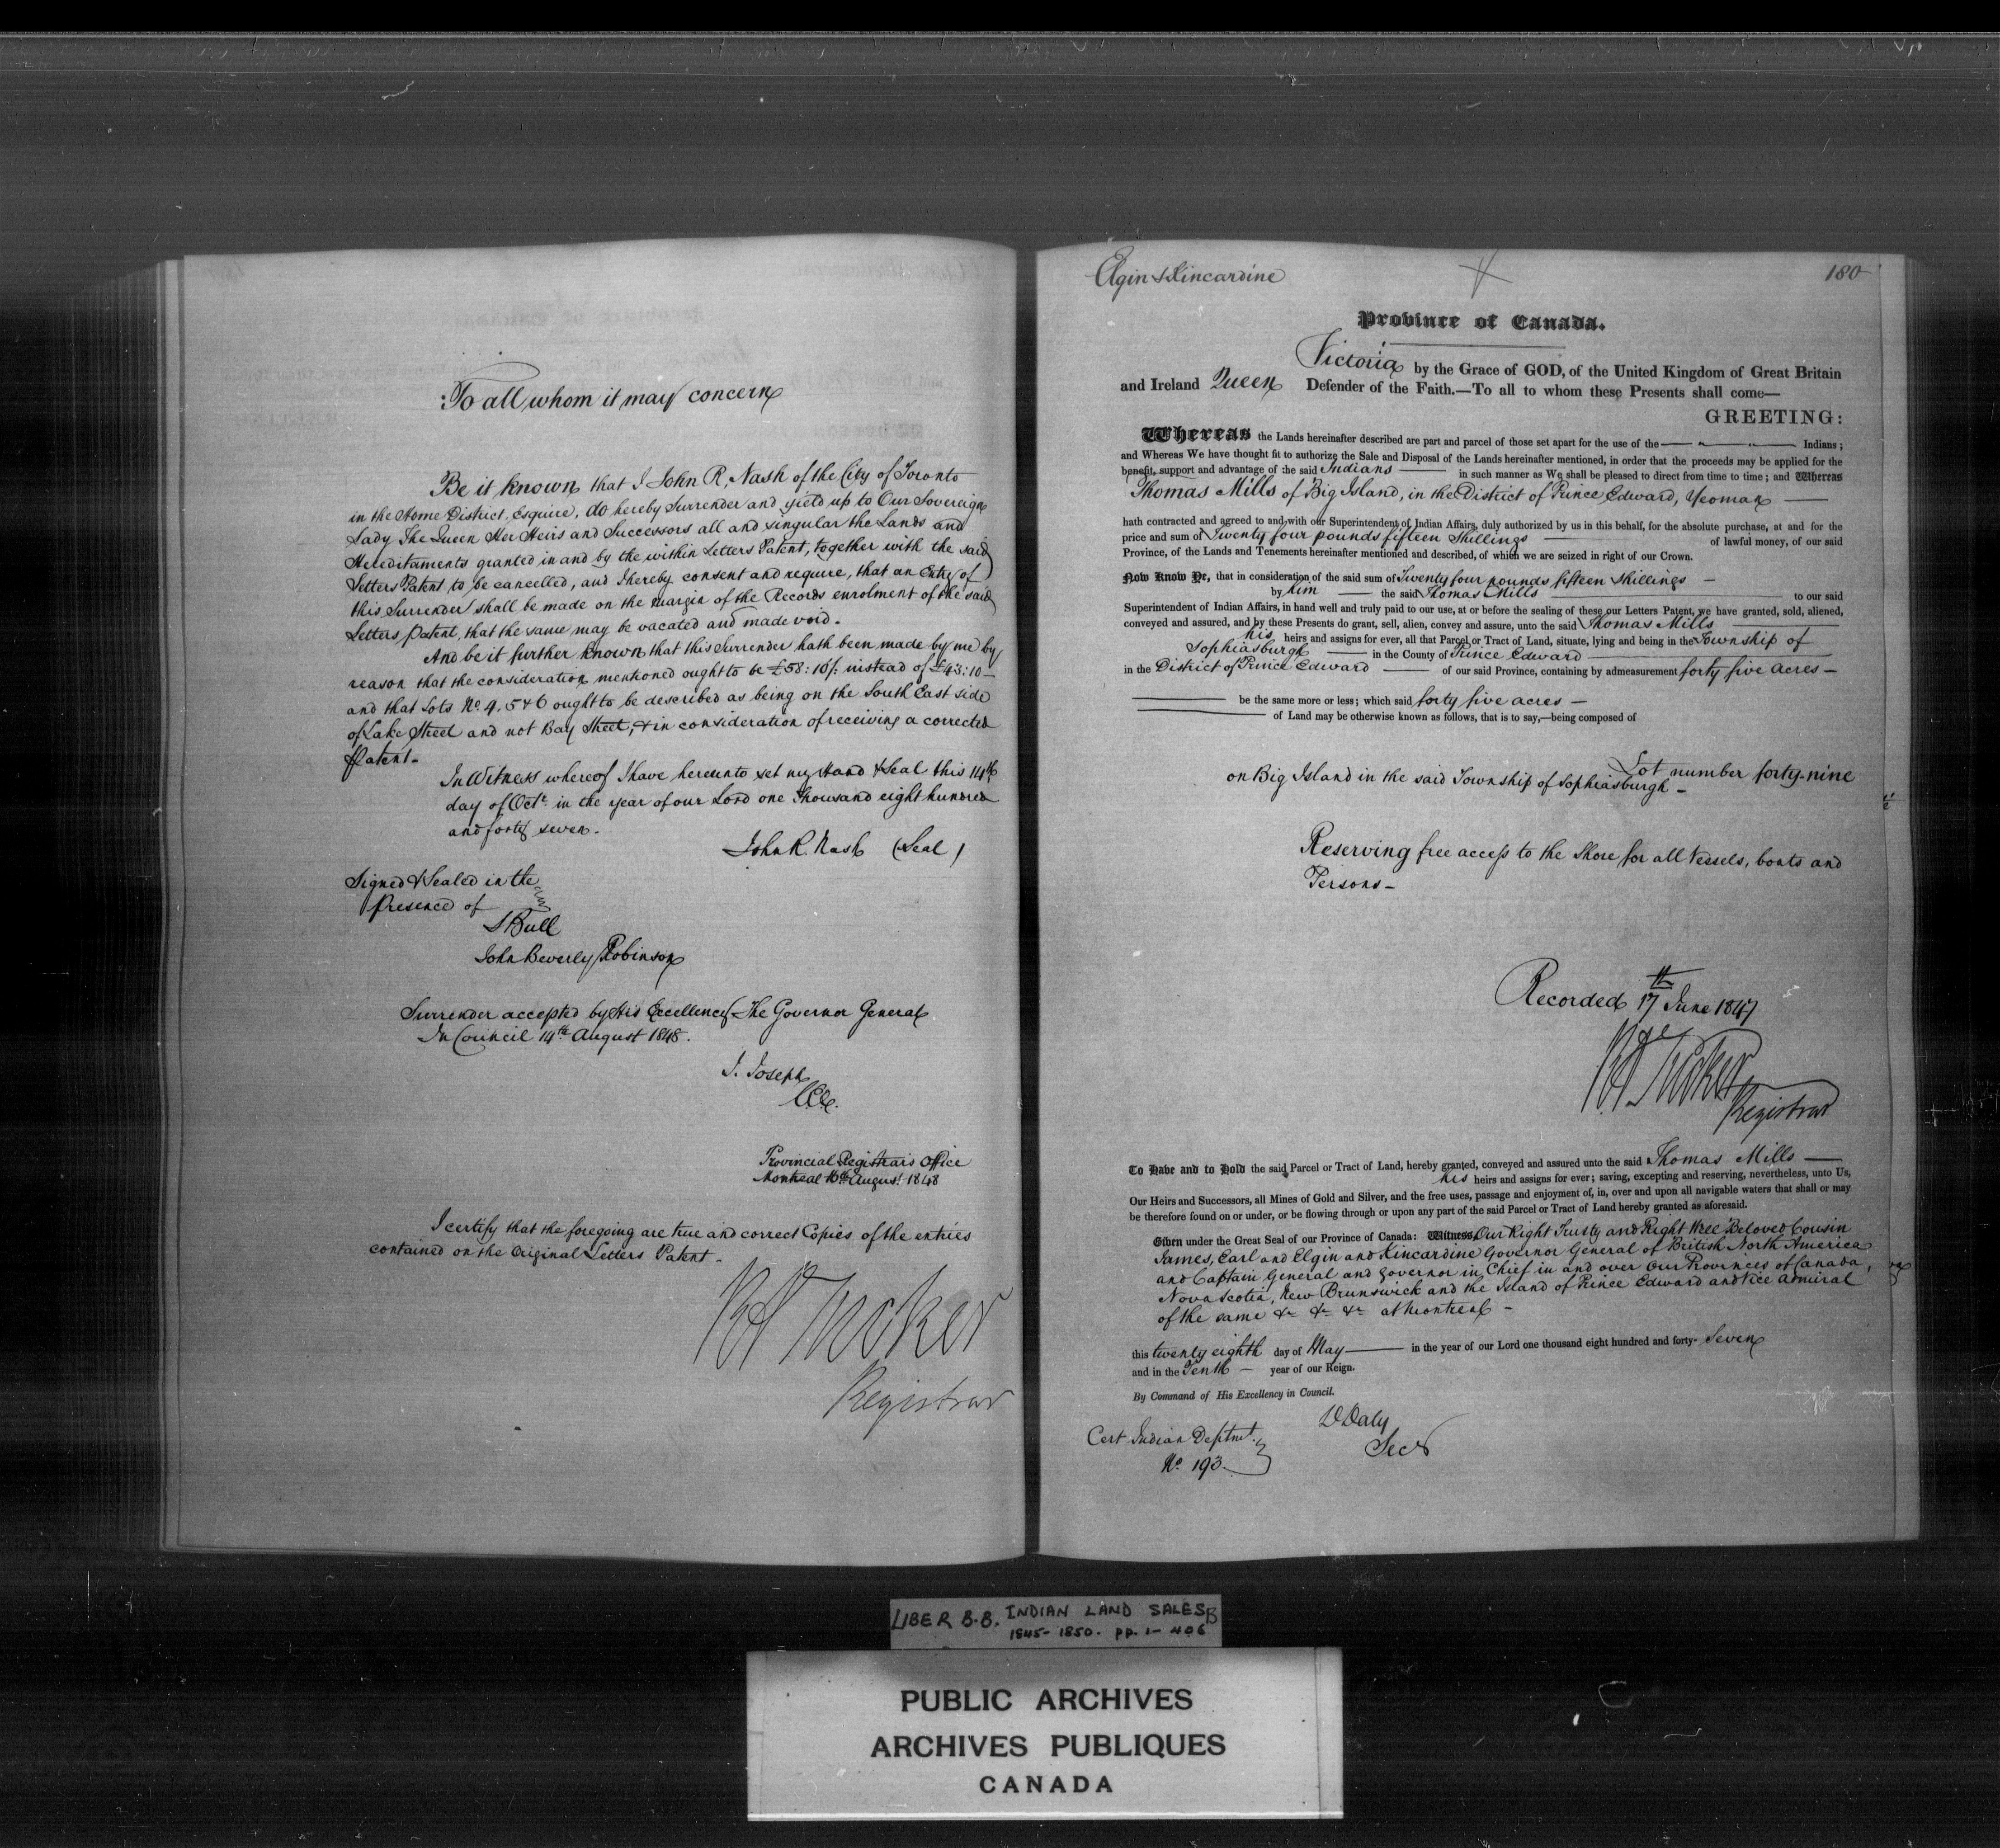 To all whom it may concern
Be it known that I John R, Nash of the City of Toronto
in the Home District, Esquire, do hereby Surrender and yield up to Our Sovereign
Lady The Queen Her Heirs and Successors all and singular the Lands and
Hereditaments granted in and by the within Letters Patent, together with the said
Letters Patent to be cancelled, and I hereby consent and require, that an Entry of
this Surrender shall be made on the margin of the Records enrolment of the said
Letters patent, that the same may be vacated and made void.
And be it further known that this Surrender hath been made by me by
reason that the consideration mentioned ought to be £58:10/. instead of £43:10—
and that Lots No. 4, 5 & 6 ought to be described as being on the South East side
of Lake Street and not Bay Street, & in consideration of receiving a corrected
Patent.
In Witness whereof I have hereunto set my Hand & Seal this 14th
day of Octr. in the year of our Lord one thousand eight hundred
and forty seven.
John R. Nash (Seal)
Signed & Sealed in the
Presence of
S Bull
John Beverly Robinson
Surrender accepted by His Excellency The Governor General
In Council 14th August 1848.
J. Joseph
CEC.
Provincial Registrars Office
Montreal 16th August 1848
I certify that the foregoing are true and correct Copies of the entries
contained on the Original Letters Patent.
RA Tucker
Registrar
Elgin & Kincardine
180
Province of Canada.
Victoria by the Grace of GOD, of the United Kingdom of Great Britain
and Ireland Queen Defender of the Faith.—To all to whom these Presents shall come—
GREETING:
Whereas the Lands hereinafter described are part and parcel of those set apart for the use of the — " — " — Indians;
and Whereas We have thought fit to authorize the Sale and Disposal of the Lands hereinafter mentioned, in order that the proceeds may be applied for the
benefit, support and advantage of the said Indians — in such manner as We shall be pleased to direct from time to time; and Whereas
Thomas Mills of Big Island, in the District of Prince Edward, Yeoman —
hath contracted and agreed to and with our Superintendent of Indian Affairs, duly authorized by us in this behalf, for the absolute purchase, at and for the
price and sum of Twenty four pounds fifteen Shillings — of lawful money, of our said
Province, of the Lands and Tenements hereinafter mentioned and described, of which we are seized in right of our Crown.
Now Know Ye, that in consideration of the said sum of Twenty four pounds fifteen shillings —
by him — the said Thomas Mills — to our said
Superintendent of Indian Affairs, in hand well and truly paid to our use, at or before the sealing of these our Letters Patent, we have granted, sold, aliened,
conveyed and assured, and by these Presents do grant, sell, alien, convey and assure, unto the said Thomas Mills —
his heirs and assigns for ever, all that Parcel or Tract of Land, situate, lying and being in the Township of
Sophiasburgh — in the County of Prince Edward —
in the District of Prince Edward — of our said Province, containing by admeasurement forty five acres —
— be the same more or less; which said forty five acres —
— of Land may be otherwise known as follows, that is to say,—being composed of
Lot number forty-nine
on Big Island in the said Township of Sophiasburgh —
Reserving free access to the Shore for all Vessels, boats and
Persons —
Recorded 17th June 1847
RA Tucker
Registrar
To Have and to Hold the said Parcel or Tract of Land, hereby granted, conveyed and assured unto the said Thomas Mills —
his heirs and assigns for ever; saving, excepting and reserving, nevertheless, unto Us,
Our Heirs and Successors, all Mines of Gold and Silver, and the free uses, passage and enjoyment of, in, over and upon all navigable waters that shall or may
be therefore found on or under, or be flowing through or upon any part of the said Parcel or Tract of Land hereby granted as aforesaid.
Given under the Great Seal of our Province of Canada: Witness, Our Right Trusty and Right Well Beloved Cousin
James, Earl and Elgin and Kincardine Governor General of British North America
and Captain General and Governor in Chief in and over Our Provinces of Canada,
Nova Scotia, New Brunswick and the Island of Prince Edward and Vice Admiral
of the same &c &c &c at Montreal —
this twenty eighth day of May — in the year of our Lord one thousand eight hundred and forty- Seven
and in the Tenth — year of our Reign.
By Command of His Excellency in Council.
D Daly
Secy
Cert Indian Deptmt.
No. 193.
LIBER B.B. INDIAN LAND SALES B
1845-1850. pp. 1-406
PUBLIC ARCHIVES
ARCHIVES PUBLIQUES
CANADA